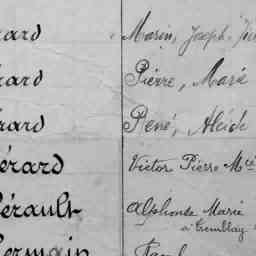 érard Marin, Joseph
érard Pierre, Marie
érard René, Alcide
érard Victor Pierre Mie
érault Alphonse Marie
à Tremblay
Germain